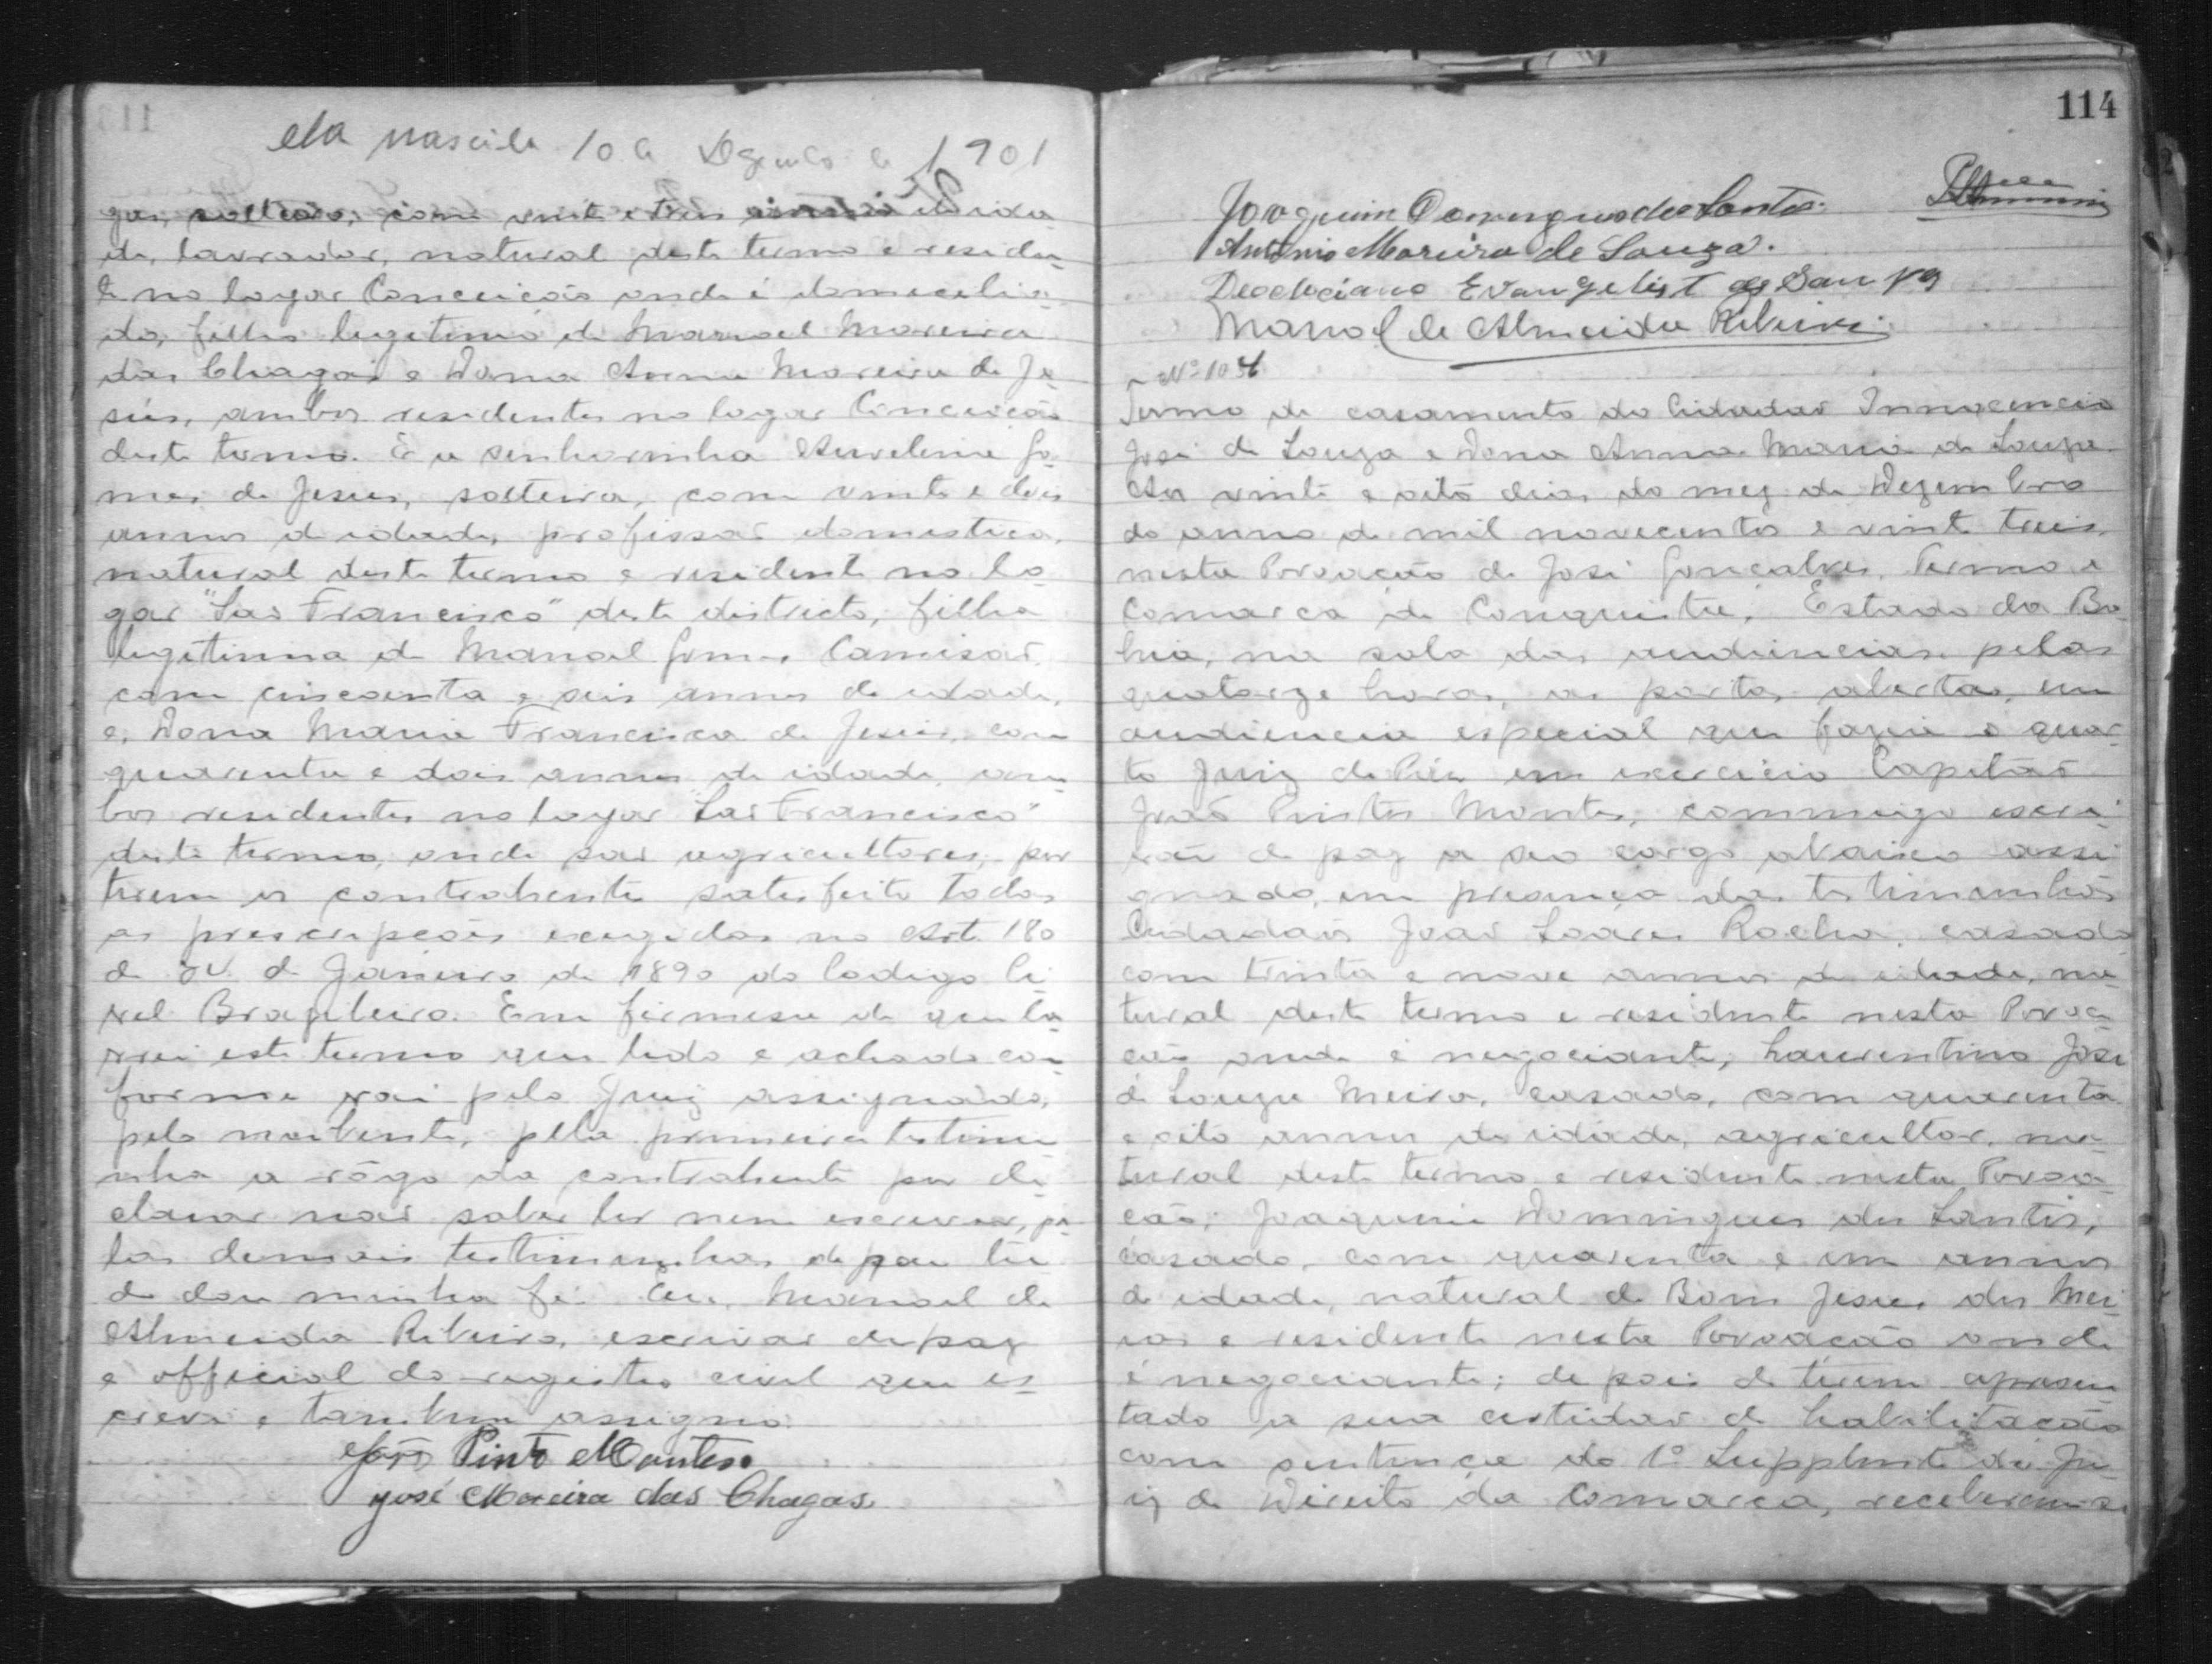 ella nascida 10 de Dezembro de 1901
gas, solteiro, com vinte e tres annos de ida
de, lavrador, natural deste termo e residen
te no logar Conceicão onde é domecelia
do, filho legitimo de Manoel Moreira
das Chagas e Dona Anna Moreira de Je
sus, ambos residentes no logar Conceicão
deste termo. E a senhorinha Aurelina Go
mes de Jesus, solteira, com vinte e dois
annos de idade, profissão domestica,
natural deste termo e residente no lo
gar "São Francisco" deste districto, filha
legitima de Manoel Gomes Camisão,
com cincoenta e seis annos de idade,
e, Dona Maria Francisca de Jesus, com
quarenta e dois annos de idade, am
bos residentes no logar "São Francisco"
deste termo, onde são agricultores, por
terem os contrahentes satisfeito todas
as prescripções exegidas no Art. 180
de Janeiro de 1890 do Codigo Ci
vel Brazileiro. Em firmesa de que la
vrei este termo que lido e achado con
forme vai pelo Juiz assignado,
pelo nubente, pela primeira testimu
nha a rôgo da contrahente por de
clarar não saber ler nem escrever, pe
las demais testimunhas, de que tu
do dou minha fé. Eu, Manoel de
Almeida Ribeiro, escrivão de paz
e official do registro civel que es
crevi e tambem assigno.
João Pinto Montes.
José Moreira das Chagas.
114
Joaquim Domingues dos Santos.
Antonio Moreira de Souza.
Deocleciano Evangelist
Manoel de Almeida Ribeiro
Nº 104
Termo de casamento do Cidadão Innocencio
José de Souza e Dona Anna Maria de Souza.
Aos vinte e oito dias do mez de Dezembro
do anno de mil novecentos e vinte treis,
nesta Povoacão de José Gonçalves, Termo e
Comarca de Conquista, Estado da Ba
hia, na sala das audiencias pelas
quatorze horas, as portas abertas, em
audiencia especial que fazia o quar
to Juiz de Paz em exercicio Capitão
João Pinto Montes, commigo escri
vão de paz a seo cargo abaixo assi
gnado, em presença das testimunhas
Cidadãos João Soares Rocha, casado
com trinta e nove annos de idade, na
tural deste termo e residente nesta Povoa
cão onde é negociante; Laurentino José
de Souza Meira, casado, com quarenta
e oito annos de idade, agricultor, na
tural deste termo e residente nesta Povoa
cão; Joaquim Domingues dos Santos,
casado, com quarenta e um annos
de idade, natural de Bom Jesus dos Mei
ras e residente nesta Povoacão onde
é negociante; depois de terem apresen
tado a sua certidão de habilitacão
com sentença do 1º Supplente de Ju
iz de Direito da Comarca, receberam-se